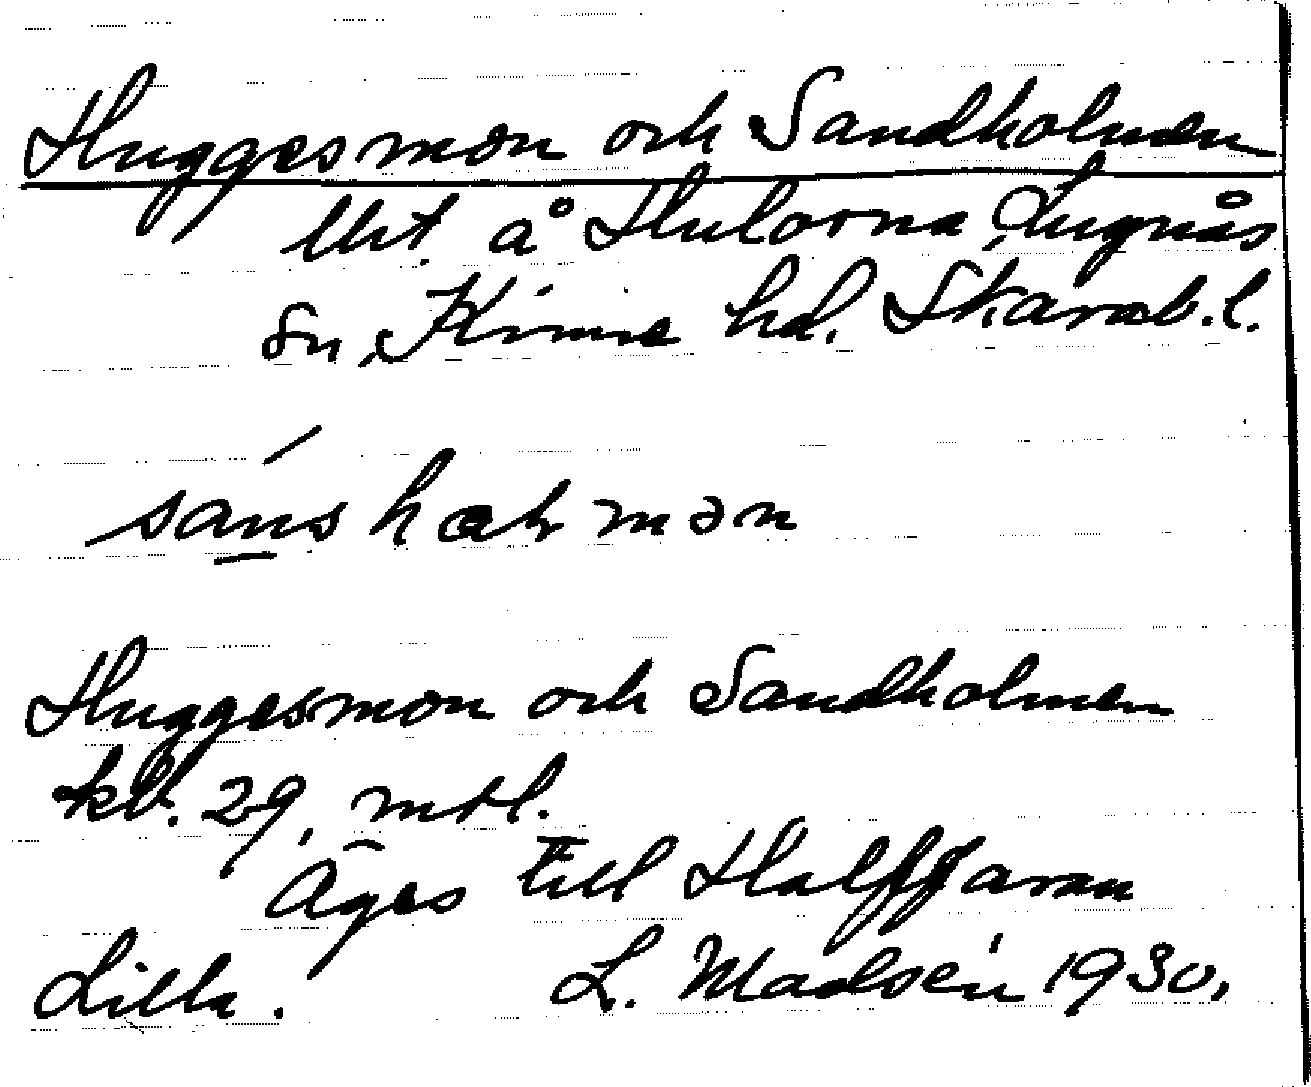 Huggesmon och Sandholmen
Utst. å Hulorna, Lugnås
sn, Kinne hd. Skarab. l.
sans hał mən
Huggesmon och Sandholmen
kv. 29, mtl.
Äges till Halffaran
Lilla. L. Madsén 1930.